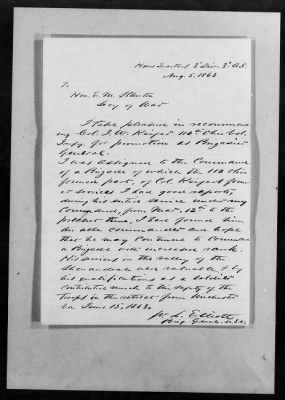 Head Quarters 3d Div. 3d A.C.
Aug. 5. 1863
To
Hon. E. M. Stanton
Secy of War
I take pleasure in recommend
ing Col. J. W. Keifer 110th Ohio Vol.
Infy. for promotion as Brigadier
General.
I was assigned to the Command
of a Brigade of which the 110 Ohio
formed part, of Col. Keifer's
services I have good reports,
during his entire service under my
Command, from Mar. 12th to the
present time, I have found him
an able commander and hope
that he may continue to command
a Brigade with increased rank.
His services in the valley of the
Shenandoah were valuable, &
his qualifications as a soldier
contributed much to the safety of the
troops in the retreat from Winchester
Va June 15, 1863.
W. L. Elliott
Brig. Genl. Vols.